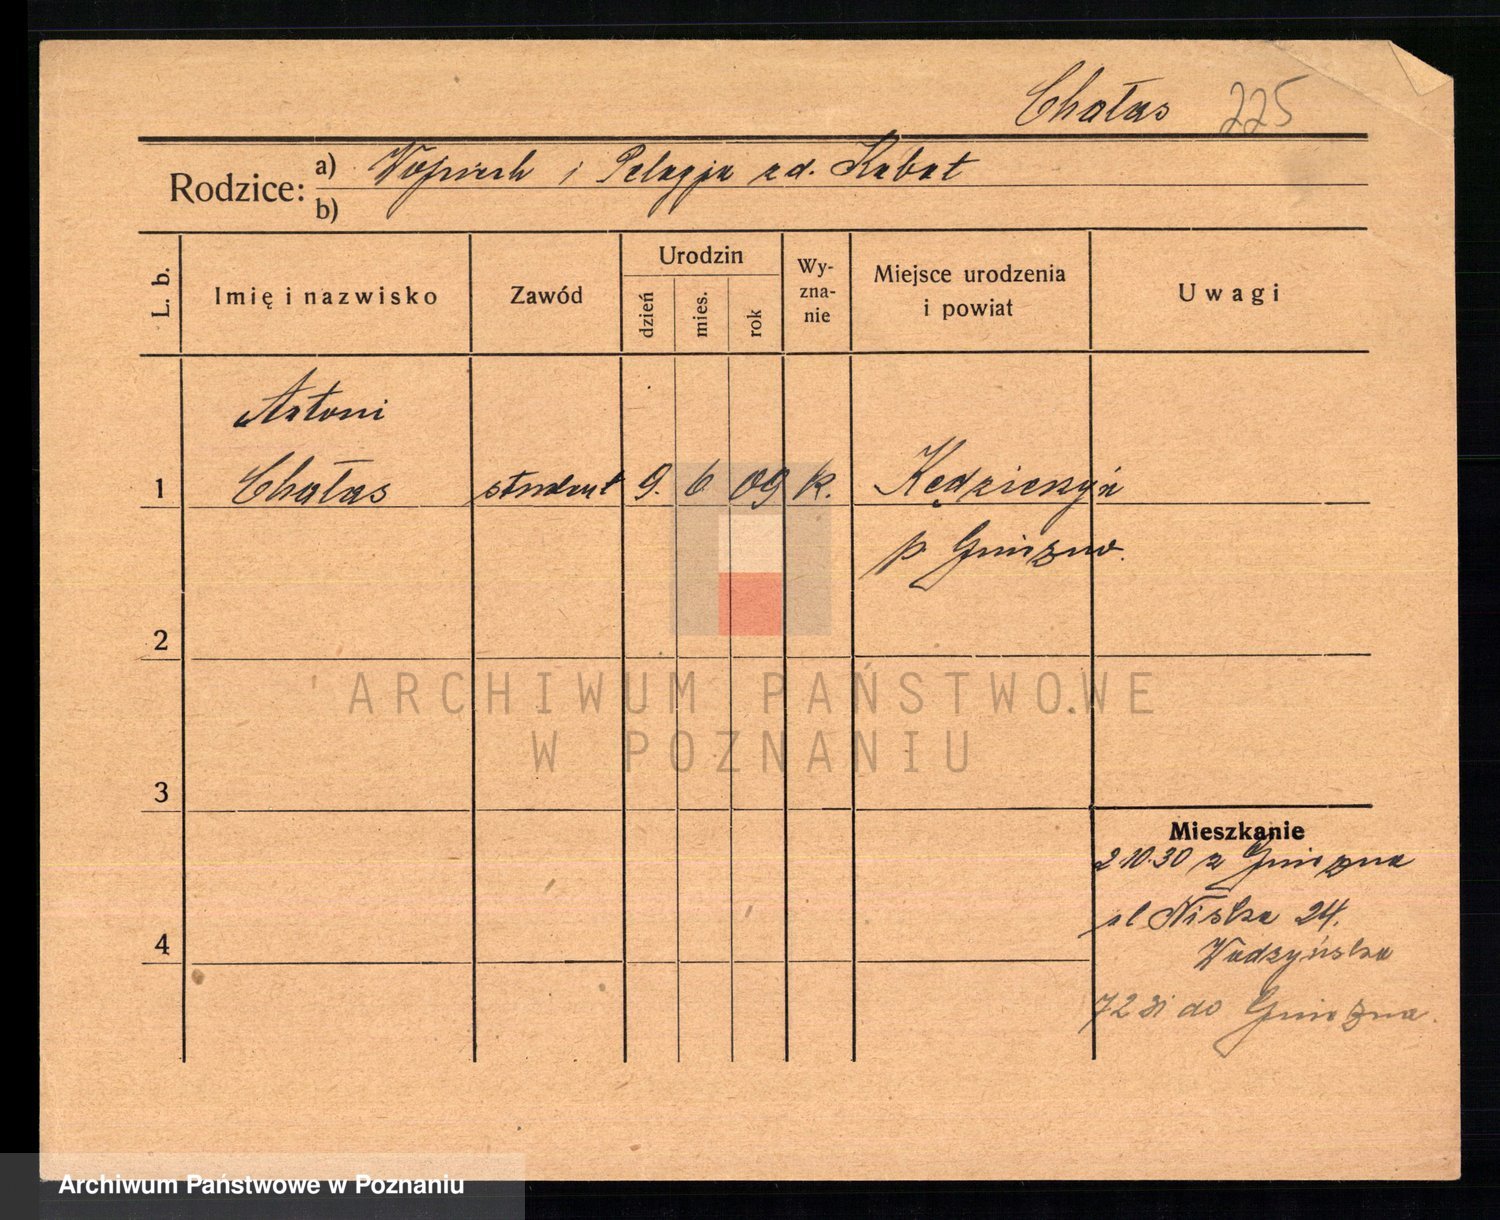 Chałas 225
Rodzice: a) Wojciech i Pelagja zd. Kabat
b)
L. b.
Imię i nazwisko
Zawód
Urodzin
dzień
mies.
rok
Wy-
zna-
nie
Miejsce urodzenia
i powiat
Uwagi
Antoni
1 Chałas student 9. 6 09 k. Kędzierzyn
p Gniezno.
2
3
4
Mieszkanie
2 10.30 z Gniezna
ul Niska 24.
Wadzyńska
7 2 31 do Gniezna.
ARCHIWUM PAŃSTWOWE
W POZNANIU
Archiwum Państwowe w Poznaniu